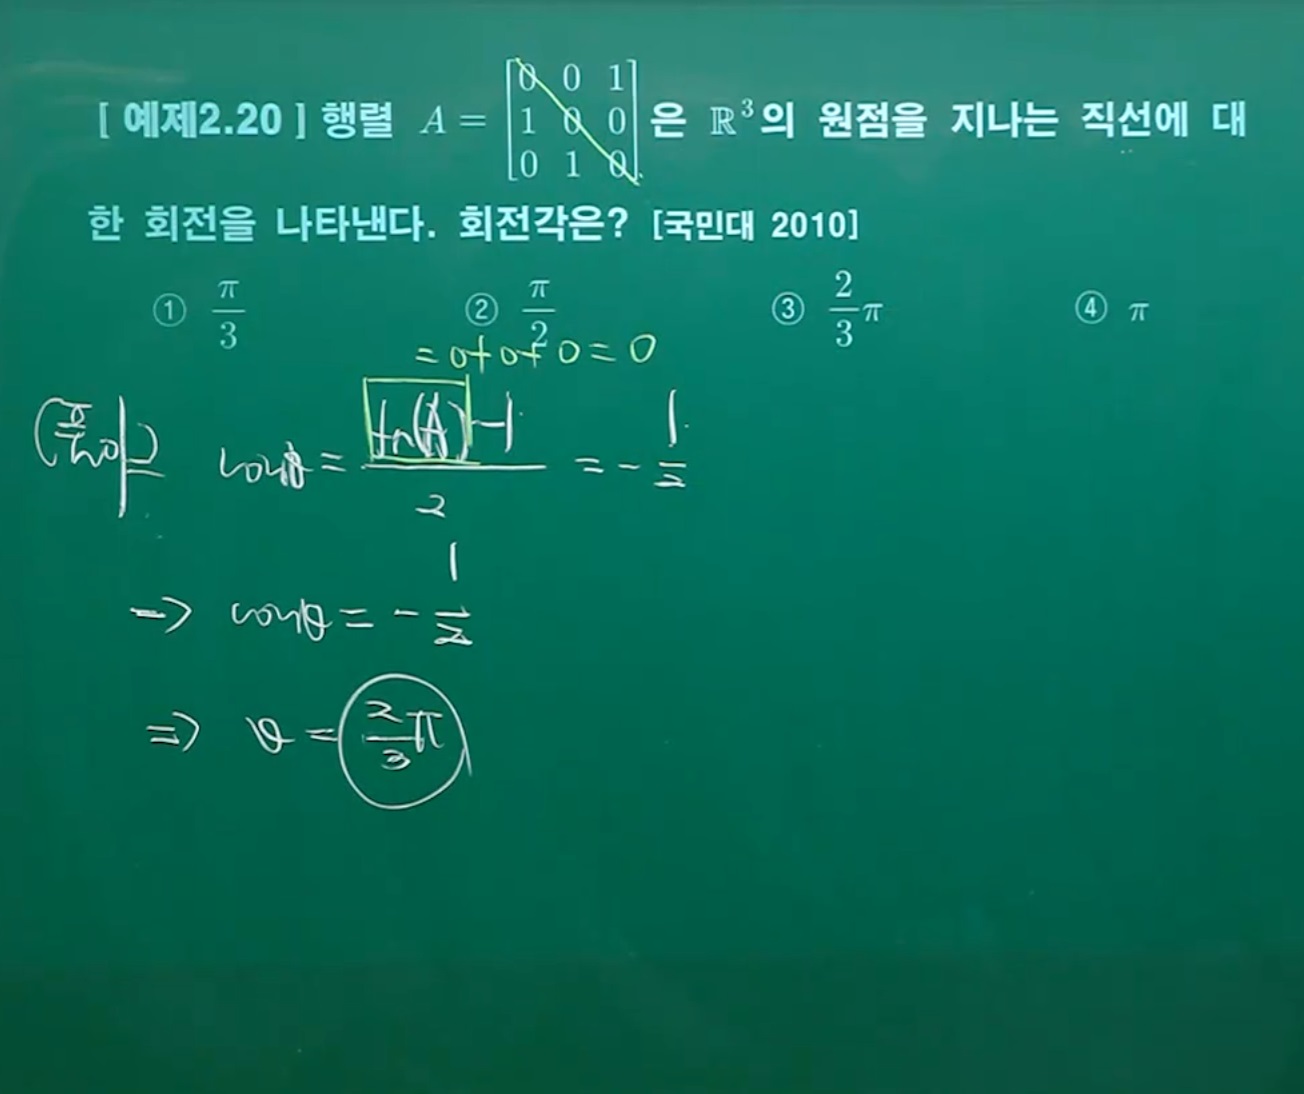 [ 예제2.20 ] 행렬 A = [0 0 1; 1 0 0; 0 1 0] 은 ℝ³의 원점을 지나는 직선에 대
한 회전을 나타낸다. 회전각은? [국민대 2010]
① π/3 ② π/2 ③ 2/3 π ④ π
= 0+0+0 = 0
cosθ = (tr(A)-1)/2 = -1/2
→ cosθ = -1/2
⇒ θ = 2/3 π